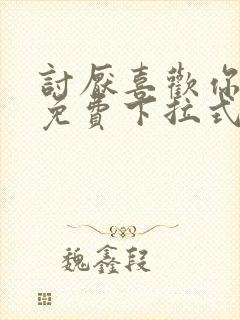 討厭喜歡你
免費下拉式
魏鑫段